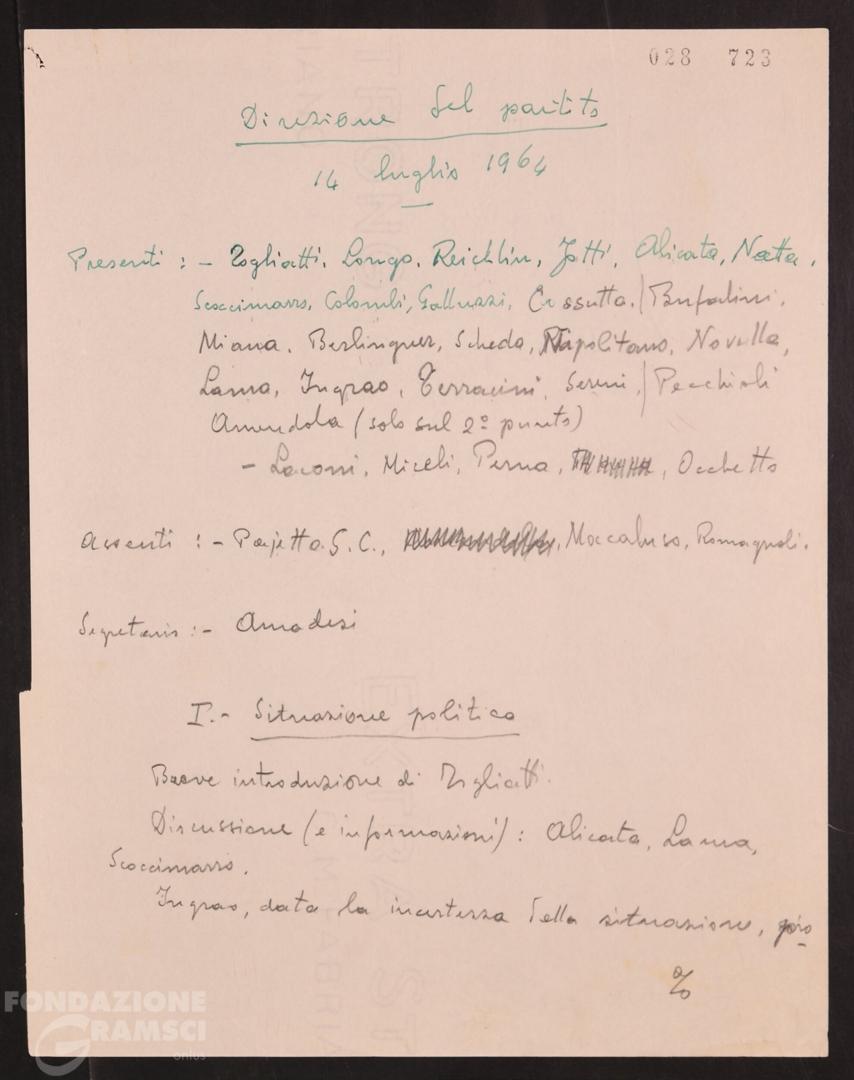 028 723
Direzione del partito
14 luglio 1964
Presenti : - Togliatti. Longo. Reichlin, Jotti, Alicata, Natta,
Scoccimarro, Colombi, Galluzzi, Cossutta, / Bufalini,
Miana, Berlinguer, Scheda, Napolitano, Novella,
Lama, Ingrao, Terracini, Sereni, / Pecchioli
Amendola (solo sul 2º punto)
- Laconi, Miceli, Perna, , Occhetto
Assenti : - Pajetta G. C., , Macaluso, Romagnoli.
Segretario :- Amadesi
I.- Situazione politica
Breve introduzione di Togliatti.
Discussione (e informazioni) : Alicata, Lama,
Scoccimarro.
Ingrao, data la incertezza della situazione, pro
%
FONDAZIONE
GRAMSCI
onlus